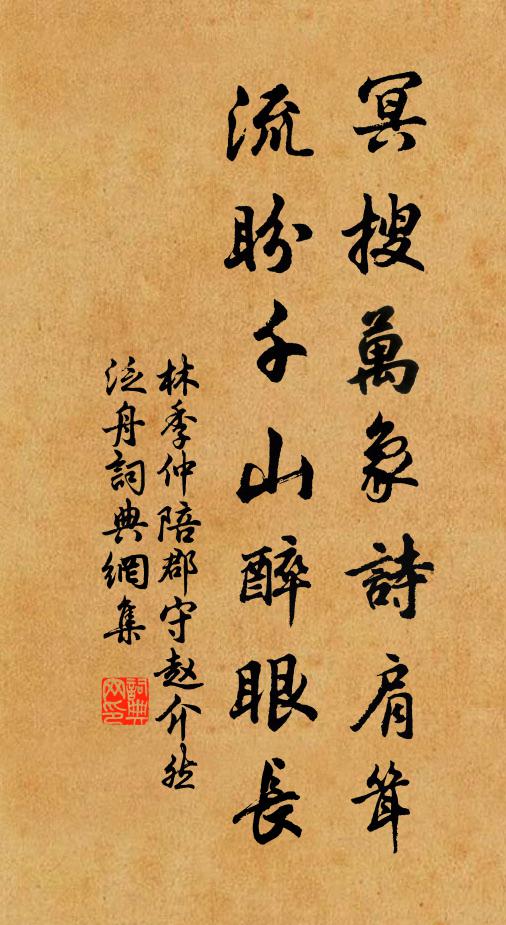 冥搜萬象詩肩聳
流盼千山醉眼長
林季仲陪郡守赵介然
泛舟詞典網集
詞典
网印